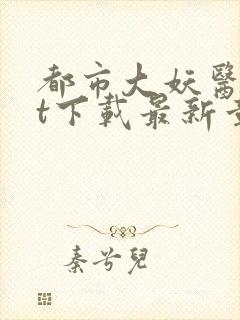 都市大妖醫
t下載最新
秦兮兒